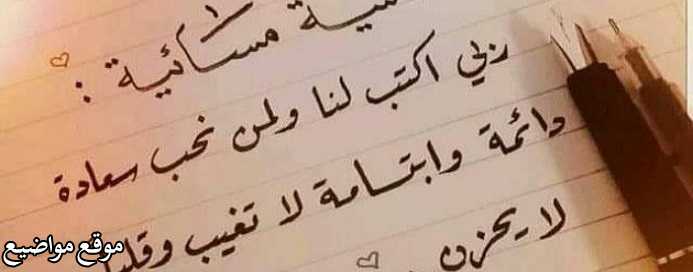 مسائية :
ربي اكتب لنا ولمن نحب سعادة
دائمة وابتسامة لا تغيب وقلبا
لا يحزن
موقع مواضيع